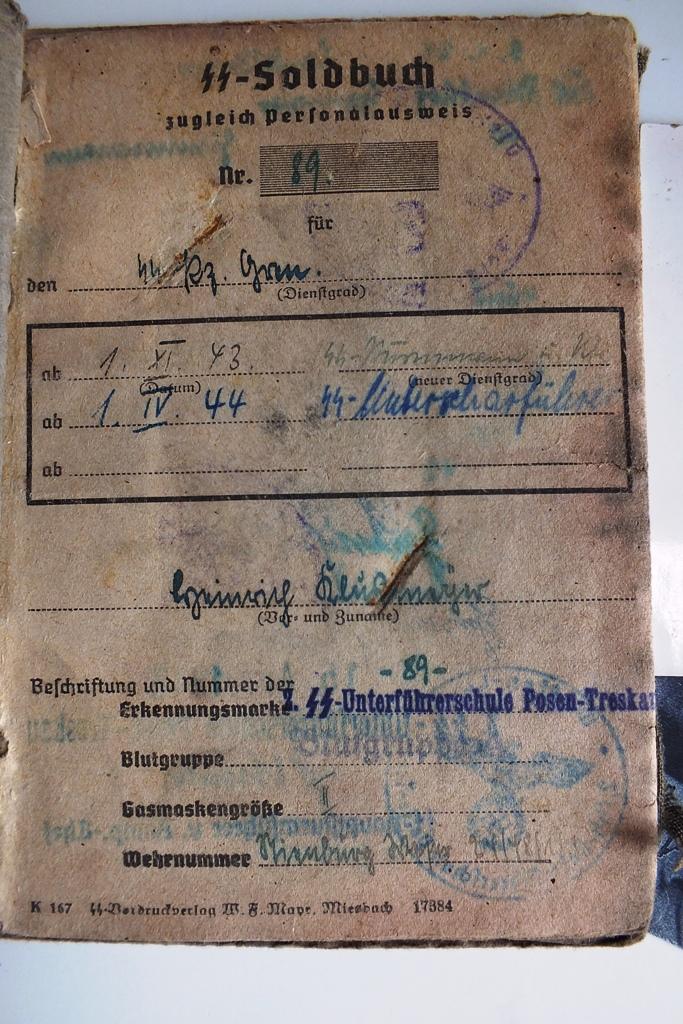 ᛋᛋ-Soldbuch
zugleich Personalausweis
Nr. 89.
für
den ᛋᛋ Pz. Gren.
(Dienstgrad)
ab 1. XI. 43.
(Datum) (neuer Dienstgrad)
ab 1. IV. 44 ᛋᛋ-Unterscharführer
ab
Heinrich
(Vor- und Zuname)
-89-
Beschriftung und Nummer der
Erkennungsmarke 2. ᛋᛋ-Unterführerschule Posen-Treskau
Blutgruppe
Gasmaskengröße II
Wehrnummer Nienburg Weser
K 167 ᛋᛋ-Vordruckverlag W. F. Mayr, Miesbach 17384